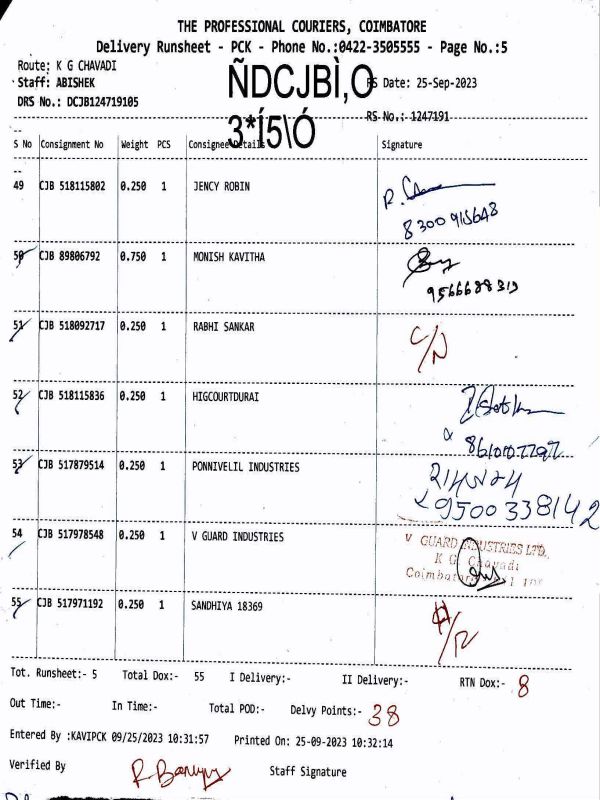 THE PROFESSIONAL COURIERS, COIMBATORE
Delivery Runsheet - PCK - Phone No.:0422-3505555 - Page No.:5
Route: K G CHAVADI
Staff: ABISHEK
ÑDCJBÌ,O
RS Date: 25-Sep-2023
DRS No.: DCJB124719105
3*Í5\Ó
RS No.: 1247191
S No Consignment No Weight PCS Consignee Details Signature
49 CJB 518115802 0.250 1 JENCY ROBIN
8300915648
50 CJB 89806792 0.750 1 MONISH KAVITHA
9566688319
51 CJB 518092717 0.250 1 RABHI SANKAR
C/N
52 CJB 518115836 0.250 1 HIGCOURTDURAI
53 CJB 517879514 0.250 1 PONNIVELIL INDUSTRIES
9500338142
54 CJB 517978548 0.250 1 V GUARD INDUSTRIES
V GUARD INDUSTRIES LTD.,
K G Chavadi
55 CJB 517971192 0.250 1 SANDHIYA 18369
Tot. Runsheet:- 5 Total Dox:- 55 I Delivery:- II Delivery:- RTN Dox:- 8
Out Time:- In Time:- Total POD:- Delvy Points:- 38
Entered By :KAVIPCK 09/25/2023 10:31:57 Printed On: 25-09-2023 10:32:14
Verified By Staff Signature